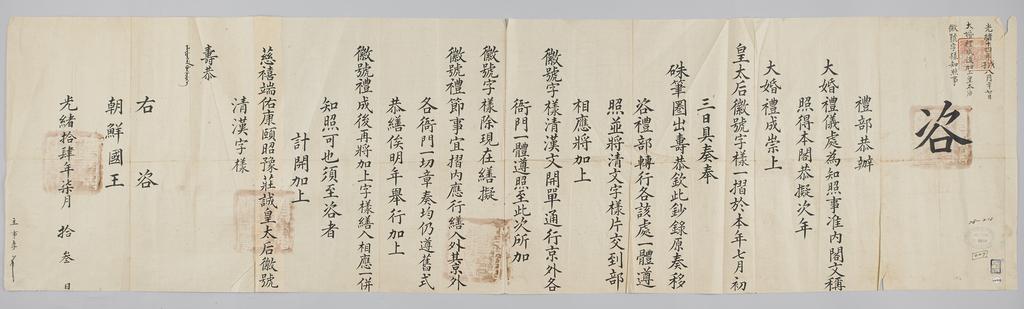 咨
禮部恭辦
大婚禮儀處為知照事准內閣文稱
照得本閣恭擬次年
大婚禮成崇上
皇太后徽號字樣一摺於本年七月初
三日具奏奉
硃筆圈出壽恭欽此鈔錄原奏移
咨禮部轉行各該處一體遵
照並將清文字樣片交到部
相應將加上
徽號字樣清漢文開單通行京外各
衙門一體遵照至此次所加
徽號字樣除現在繕擬
徽號禮節事宜摺內應行繕入外其京外
各衙門一切章奏均仍遵舊式
恭繕俟明年舉行加上
徽號禮成後再將加上字樣繕入相應一併
知照可也須至咨者
計開加上
慈禧端佑康頤昭豫莊誠皇太后徽號
清漢字樣
壽恭
右咨
朝鮮國王
光緒拾肆年柒月拾叁日